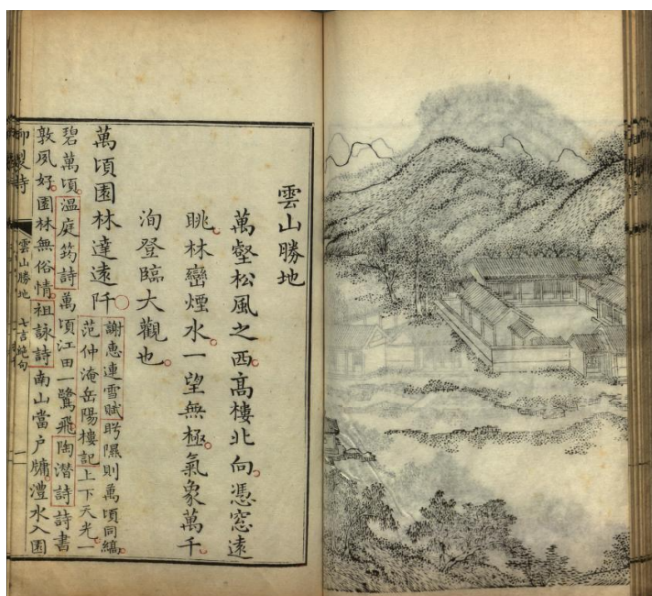 雲山勝地
萬壑松風之西。高樓北向。憑窓遠
眺。林巒煙水。一望無極。氣象萬千。
洵登臨大觀也。
萬頃園林達遠阡○
謝惠連雪賦眄隰則萬頃同縞。
范仲淹岳陽樓記上下天光。一
碧萬頃。溫庭筠詩萬頃江田一鷺飛。陶潛詩詩書
敦夙好。園林無俗情。祖詠詩南山當户牖。澧水入園
御製詩
雲山勝地
七言絶句